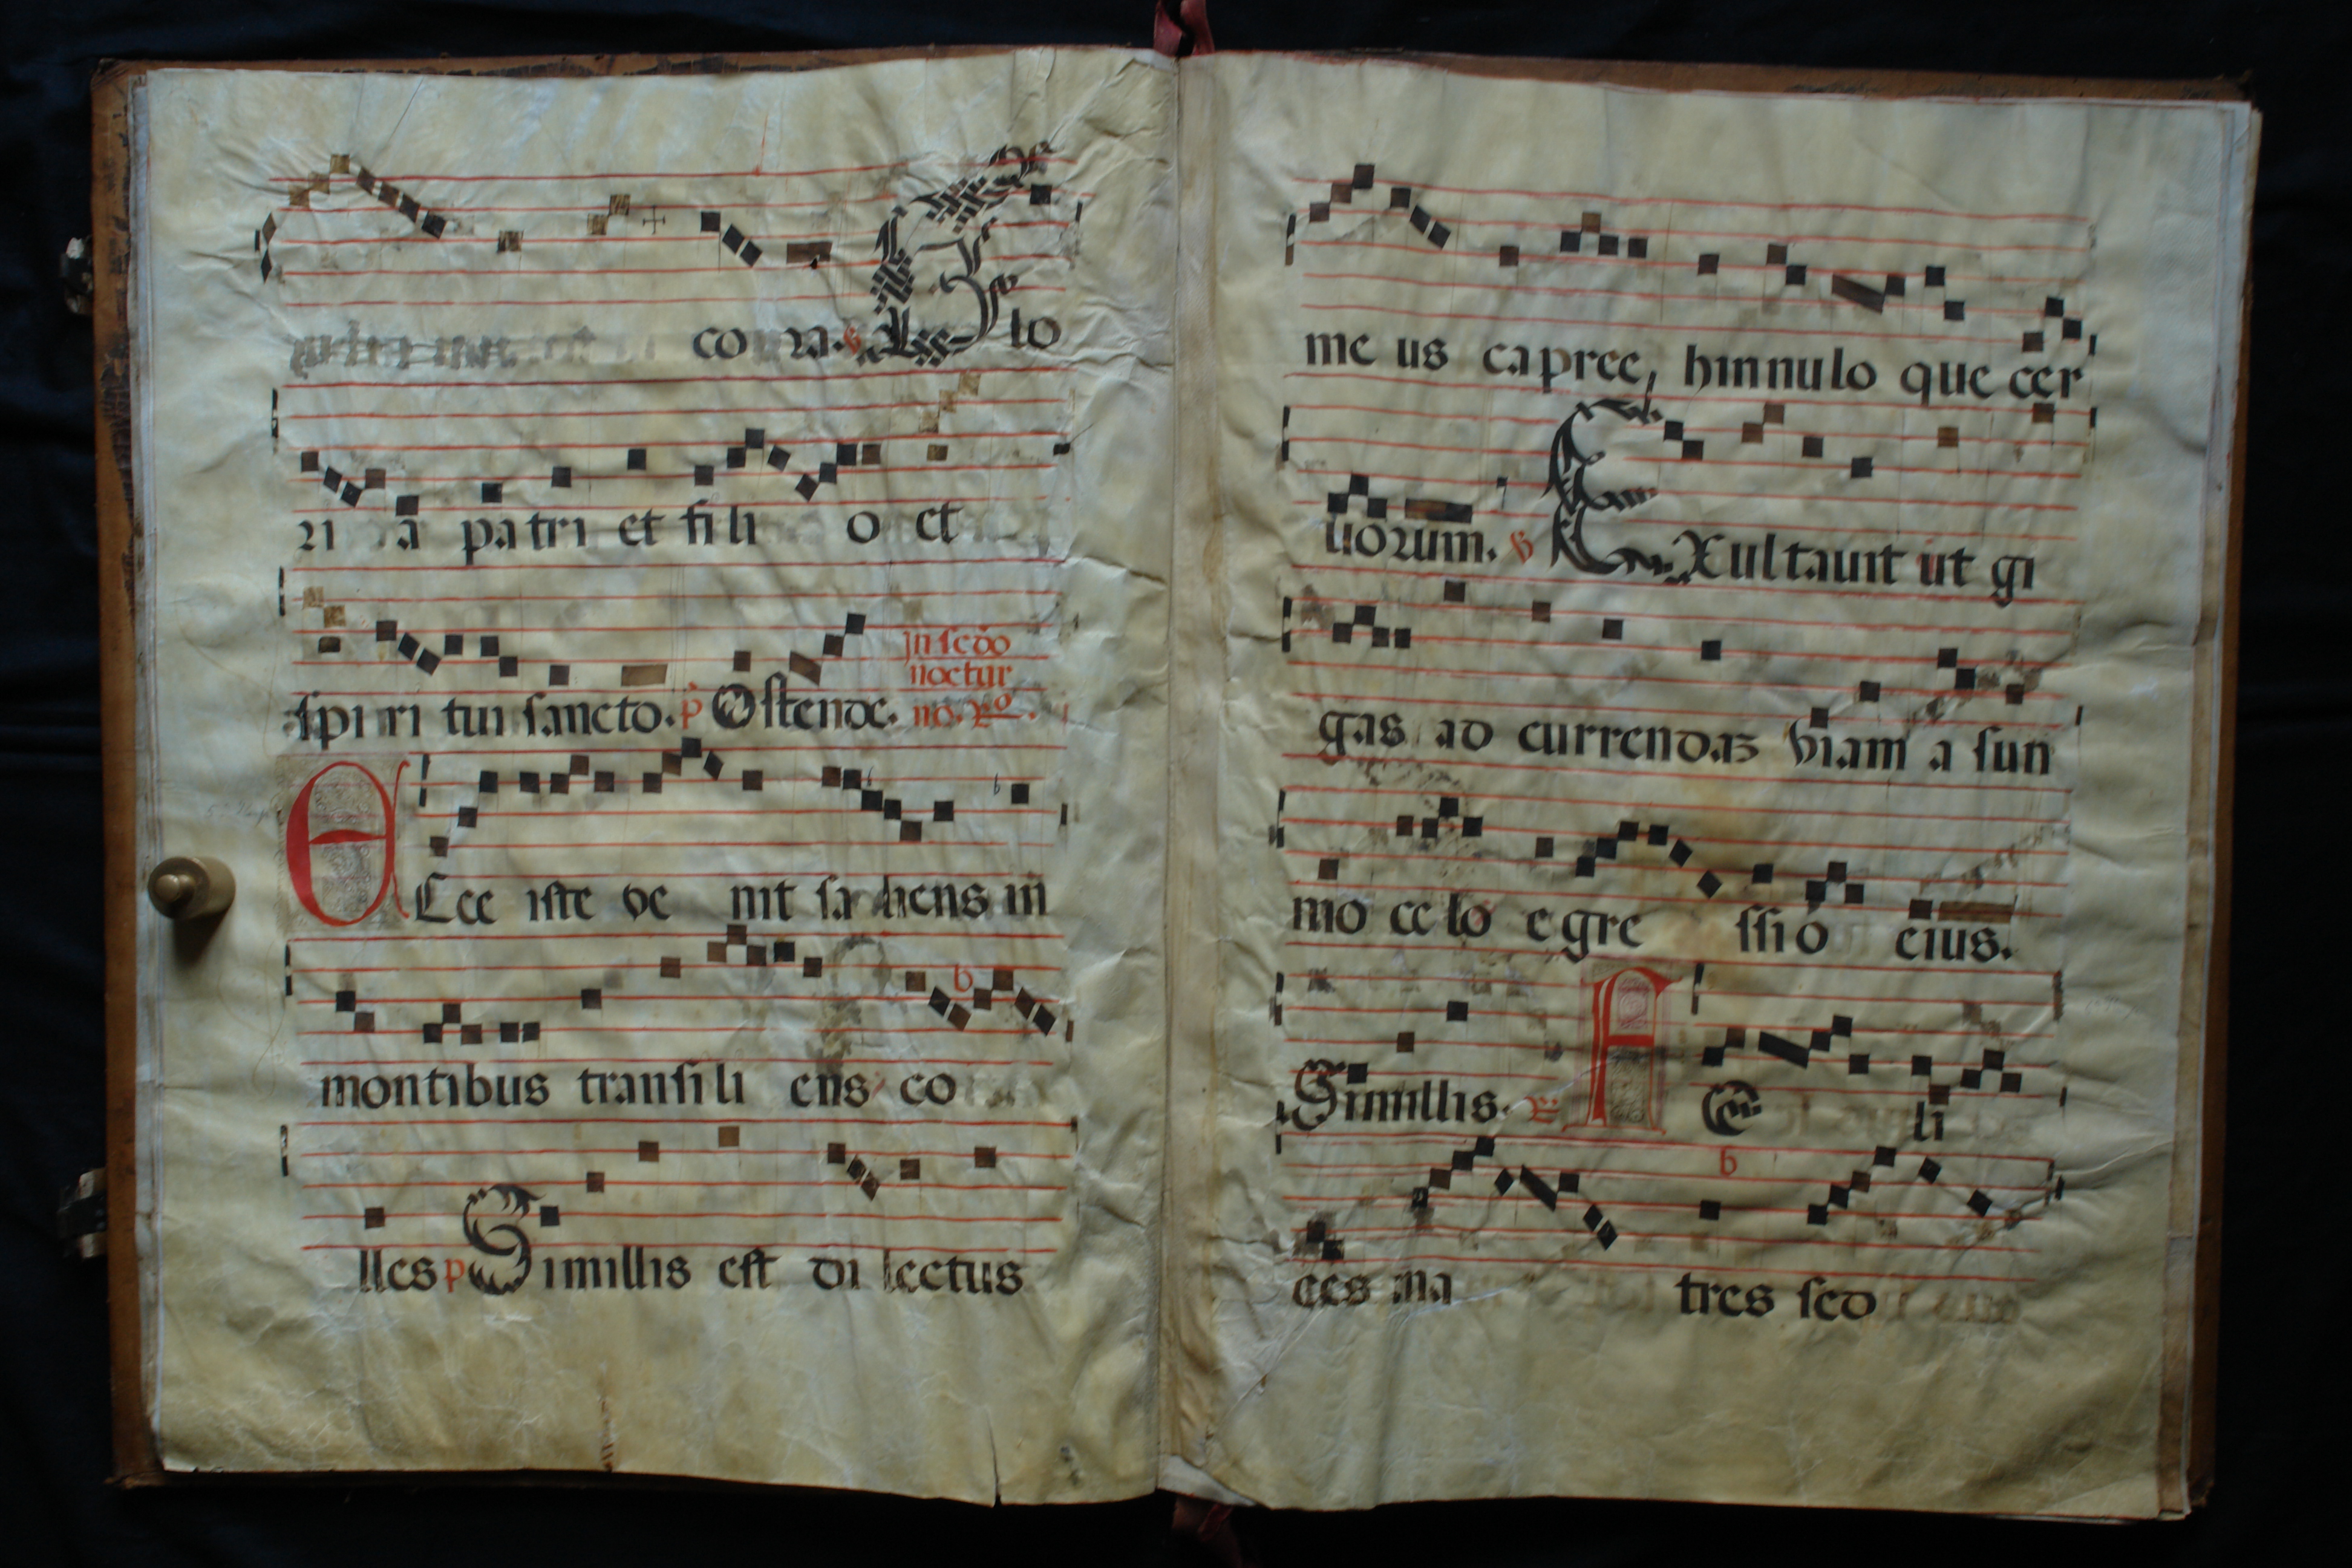 co ra. ℣ Glo
ri a patri et fili o et
spi ri tui sancto. p Ostende. In scdo
noctur
no. Ro.
ECce iste ve nit sa liens in
montibus transili ens co
lles p Simillis est di lectus
me us capree, hinnulo que cer
uorum. ℣ EXultauit ut gi
gas ad currendaz viam a sum
mo ce lo egre ssi o eius.
Simillis. R A E li
ces ma tres sed